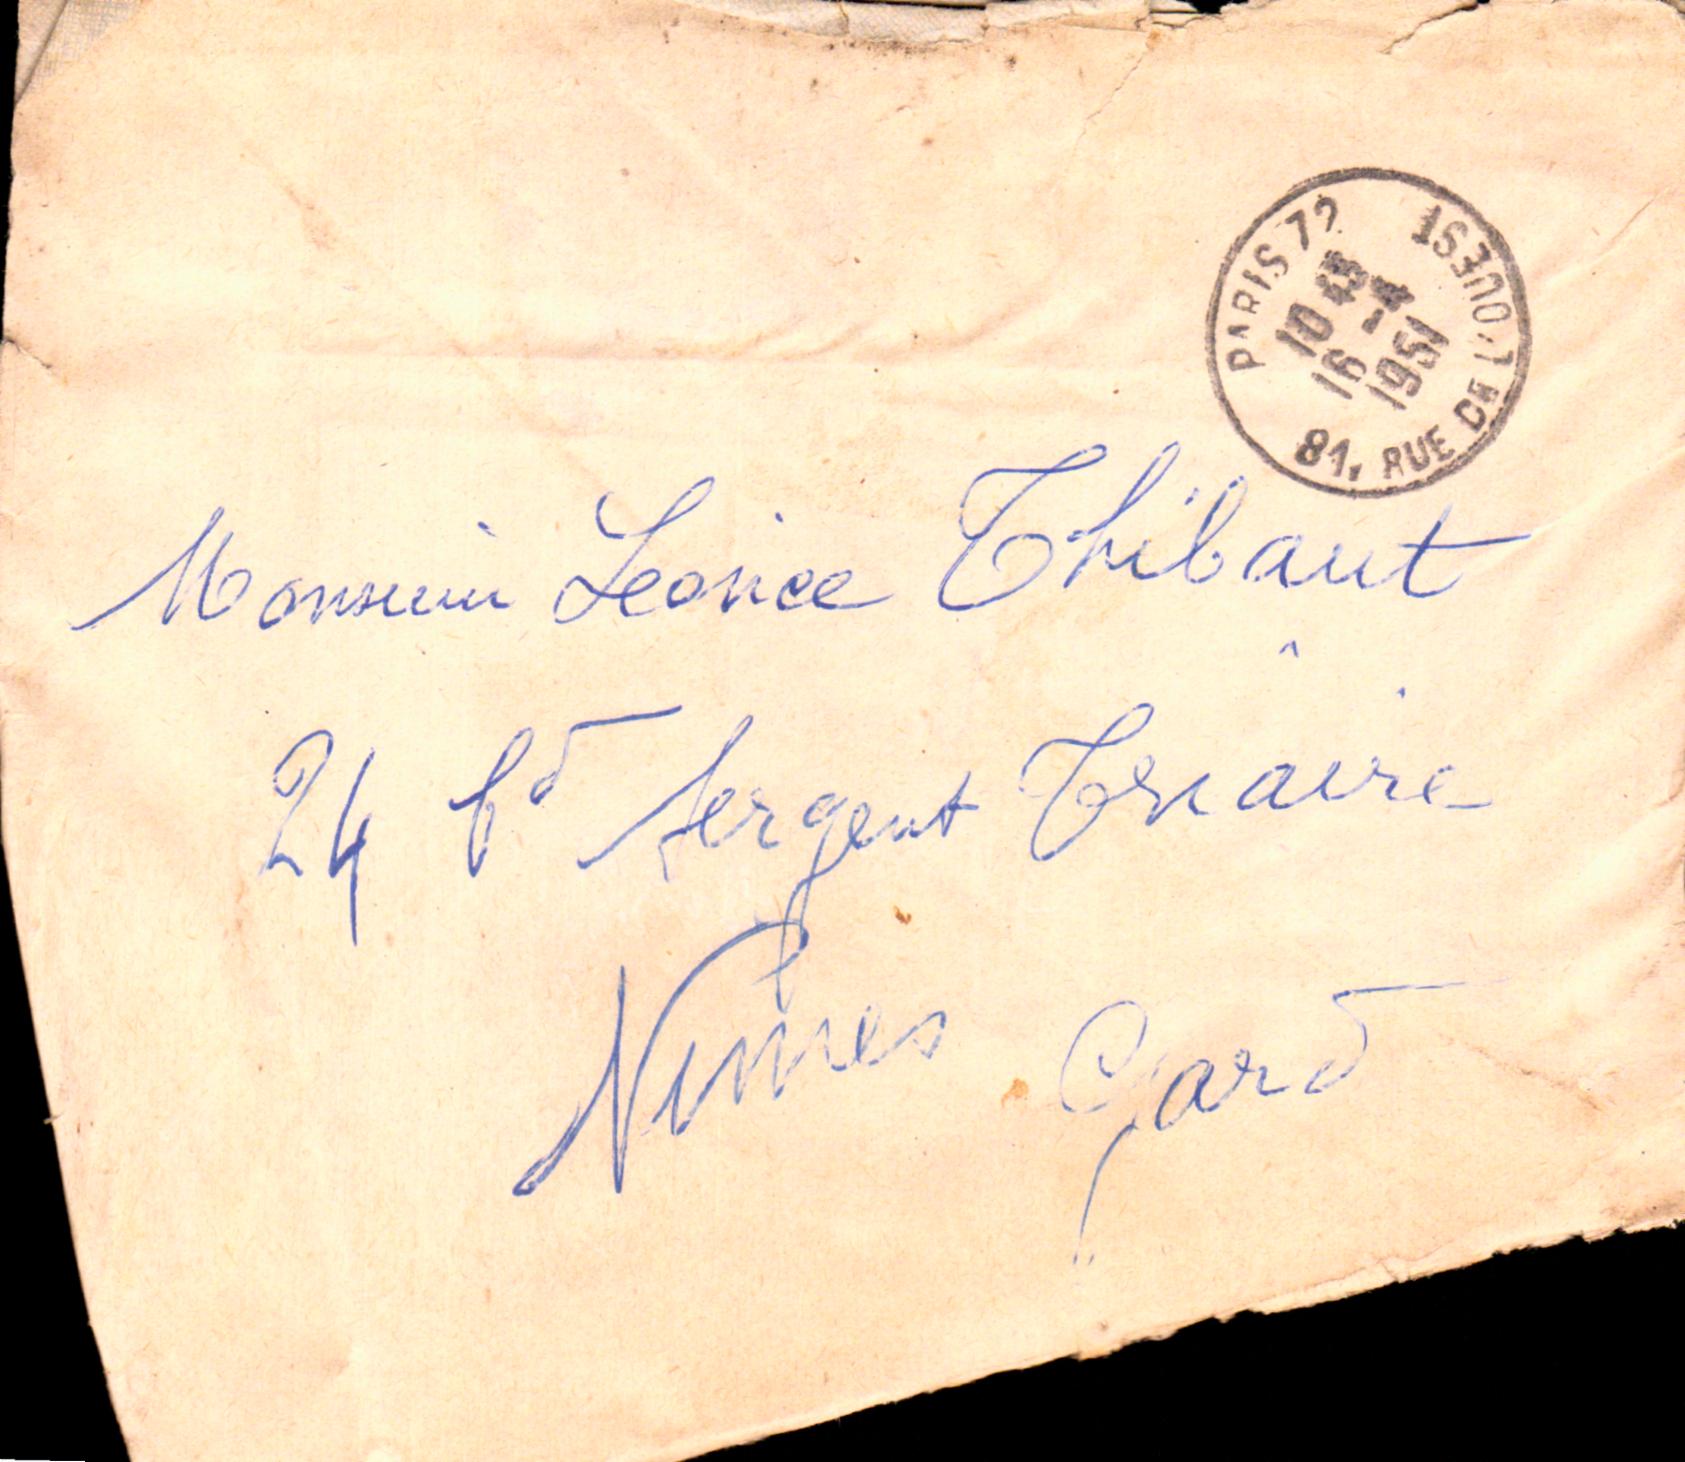 PARIS 72
81, RUE DE L'OUEST
10 45
16 -4
1951
Monsieur Leonce Thibaut
24 bd Sergent Triaire
Nimes Gard